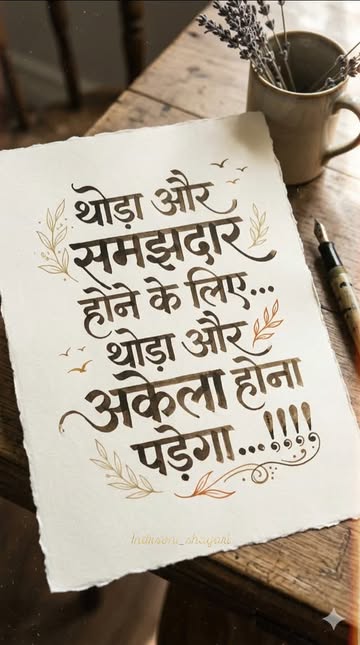 थोड़ा और
समझदार
होने के लिए...
थोड़ा और
अकेला होना
पड़ेगा...!!!!